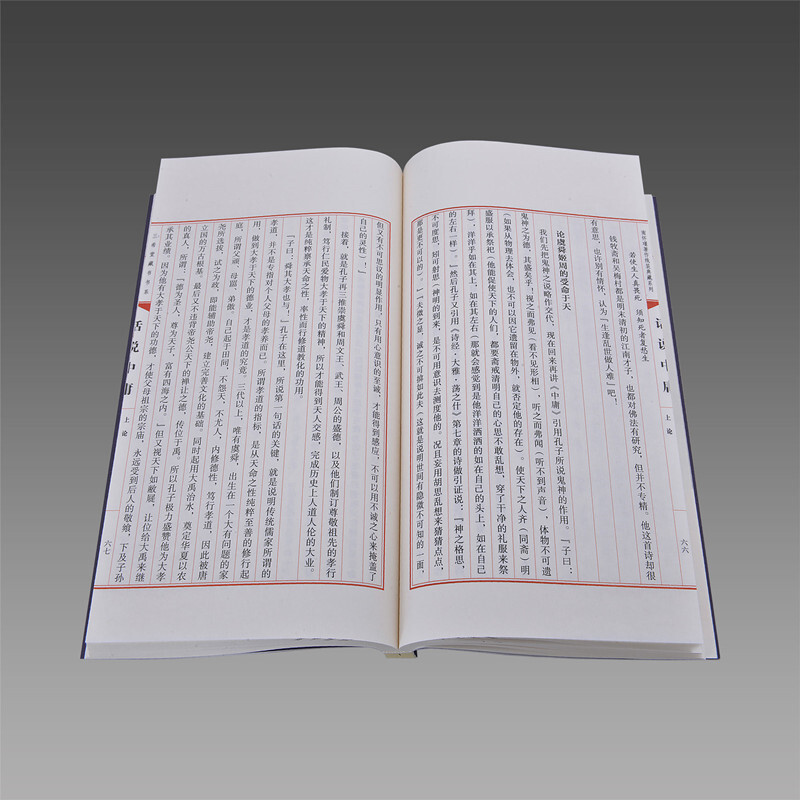 话说中庸
上论
六六
若使生人真畏死 须知死者复愁生
钱牧斋和吴梅村都是明末清初的江南才子，也都对佛法有研究，但并不专精。他这首诗却很
有意思，也许别有情怀，认为「生逢乱世做人难」吧！
论虞舜姬周的受命于天
我们先把鬼神之说略作交代，现在回来再讲《中庸》引用孔子所说鬼神的作用。「子曰：
鬼神之为德，其盛矣乎！视之而弗见（看不见形相），听之而弗闻（听不到声音），体物不可遗
（如果从物理去体会，也不可以因它遗留在物外，就否定他的存在）。使天下之人齐（同斋）明
盛服以承祭祀（他能促使天下的人们，都要斋戒清明自己的心思不敢乱想，穿了干净的礼服来祭
拜），洋洋乎如在其上，如在其左右（那就会感觉到是他洋洋洒洒的如在自己的头上，如在自己
的左右一样）。」然后孔子又引用《诗经·大雅·荡之什》第七章的诗做引证说：「神之格思，
不可度思，矧可射思（神明的到来，是不可用意识去测度他的。况且妄用胡思乱想来猜猜点点，
那是更不可以的）。」「夫微之显，诚之不可掩如此夫（这就是说明世间有隐微不可知的一面，
但又有不可思议的明显作用，只有用心意识的至诚，才能得到感应，不可以用不诚之心来掩盖了
自己的灵性）。」
接着，就是孔子再三推崇虞舜和周文王、武王、周公的盛德，以及他们制订尊敬祖先的孝行
礼制，笃行仁民爱物大孝于天下的精神，所以才能得到天人交感，完成历史上人道人伦的大业。
这才是纯粹禀承天命之性，率性而行修道教化的功用。
「子曰：舜其大孝也与！」孔子在这里，所说第一句话的关键，就是说明传统儒家所谓的
孝道，并不是专指对个人父母的孝养而已。所谓孝道的指标，是从天命之性纯粹至善的修行起
用，做到大孝于天下的德业，才是孝道的究竟。三代以上，唯有虞舜，出生在一个大有问题的家
庭，所谓父顽、母嚚、弟傲，自己起于田间，不怨天、不尤人，内修德性，笃行孝道，因此被唐
尧所选拔，试之为政，即能辅助帝尧，建立完善文化的基础。同时起用大禹治水，奠定华夏以农
立国的万古根基。最后又不违背帝尧公天下的禅让之德，传位于禹。所以孔子极力盛赞他为大孝
的真人，所谓，「德为圣人，尊为天子，富有四海之内。」但又视天下如敝屣，让位给大禹来继
承其业绩，因为他有大孝于天下的功德，才使父母祖宗的宗庙，永远受到后人的敬飨，下及子孙
话说中庸
上论
六七